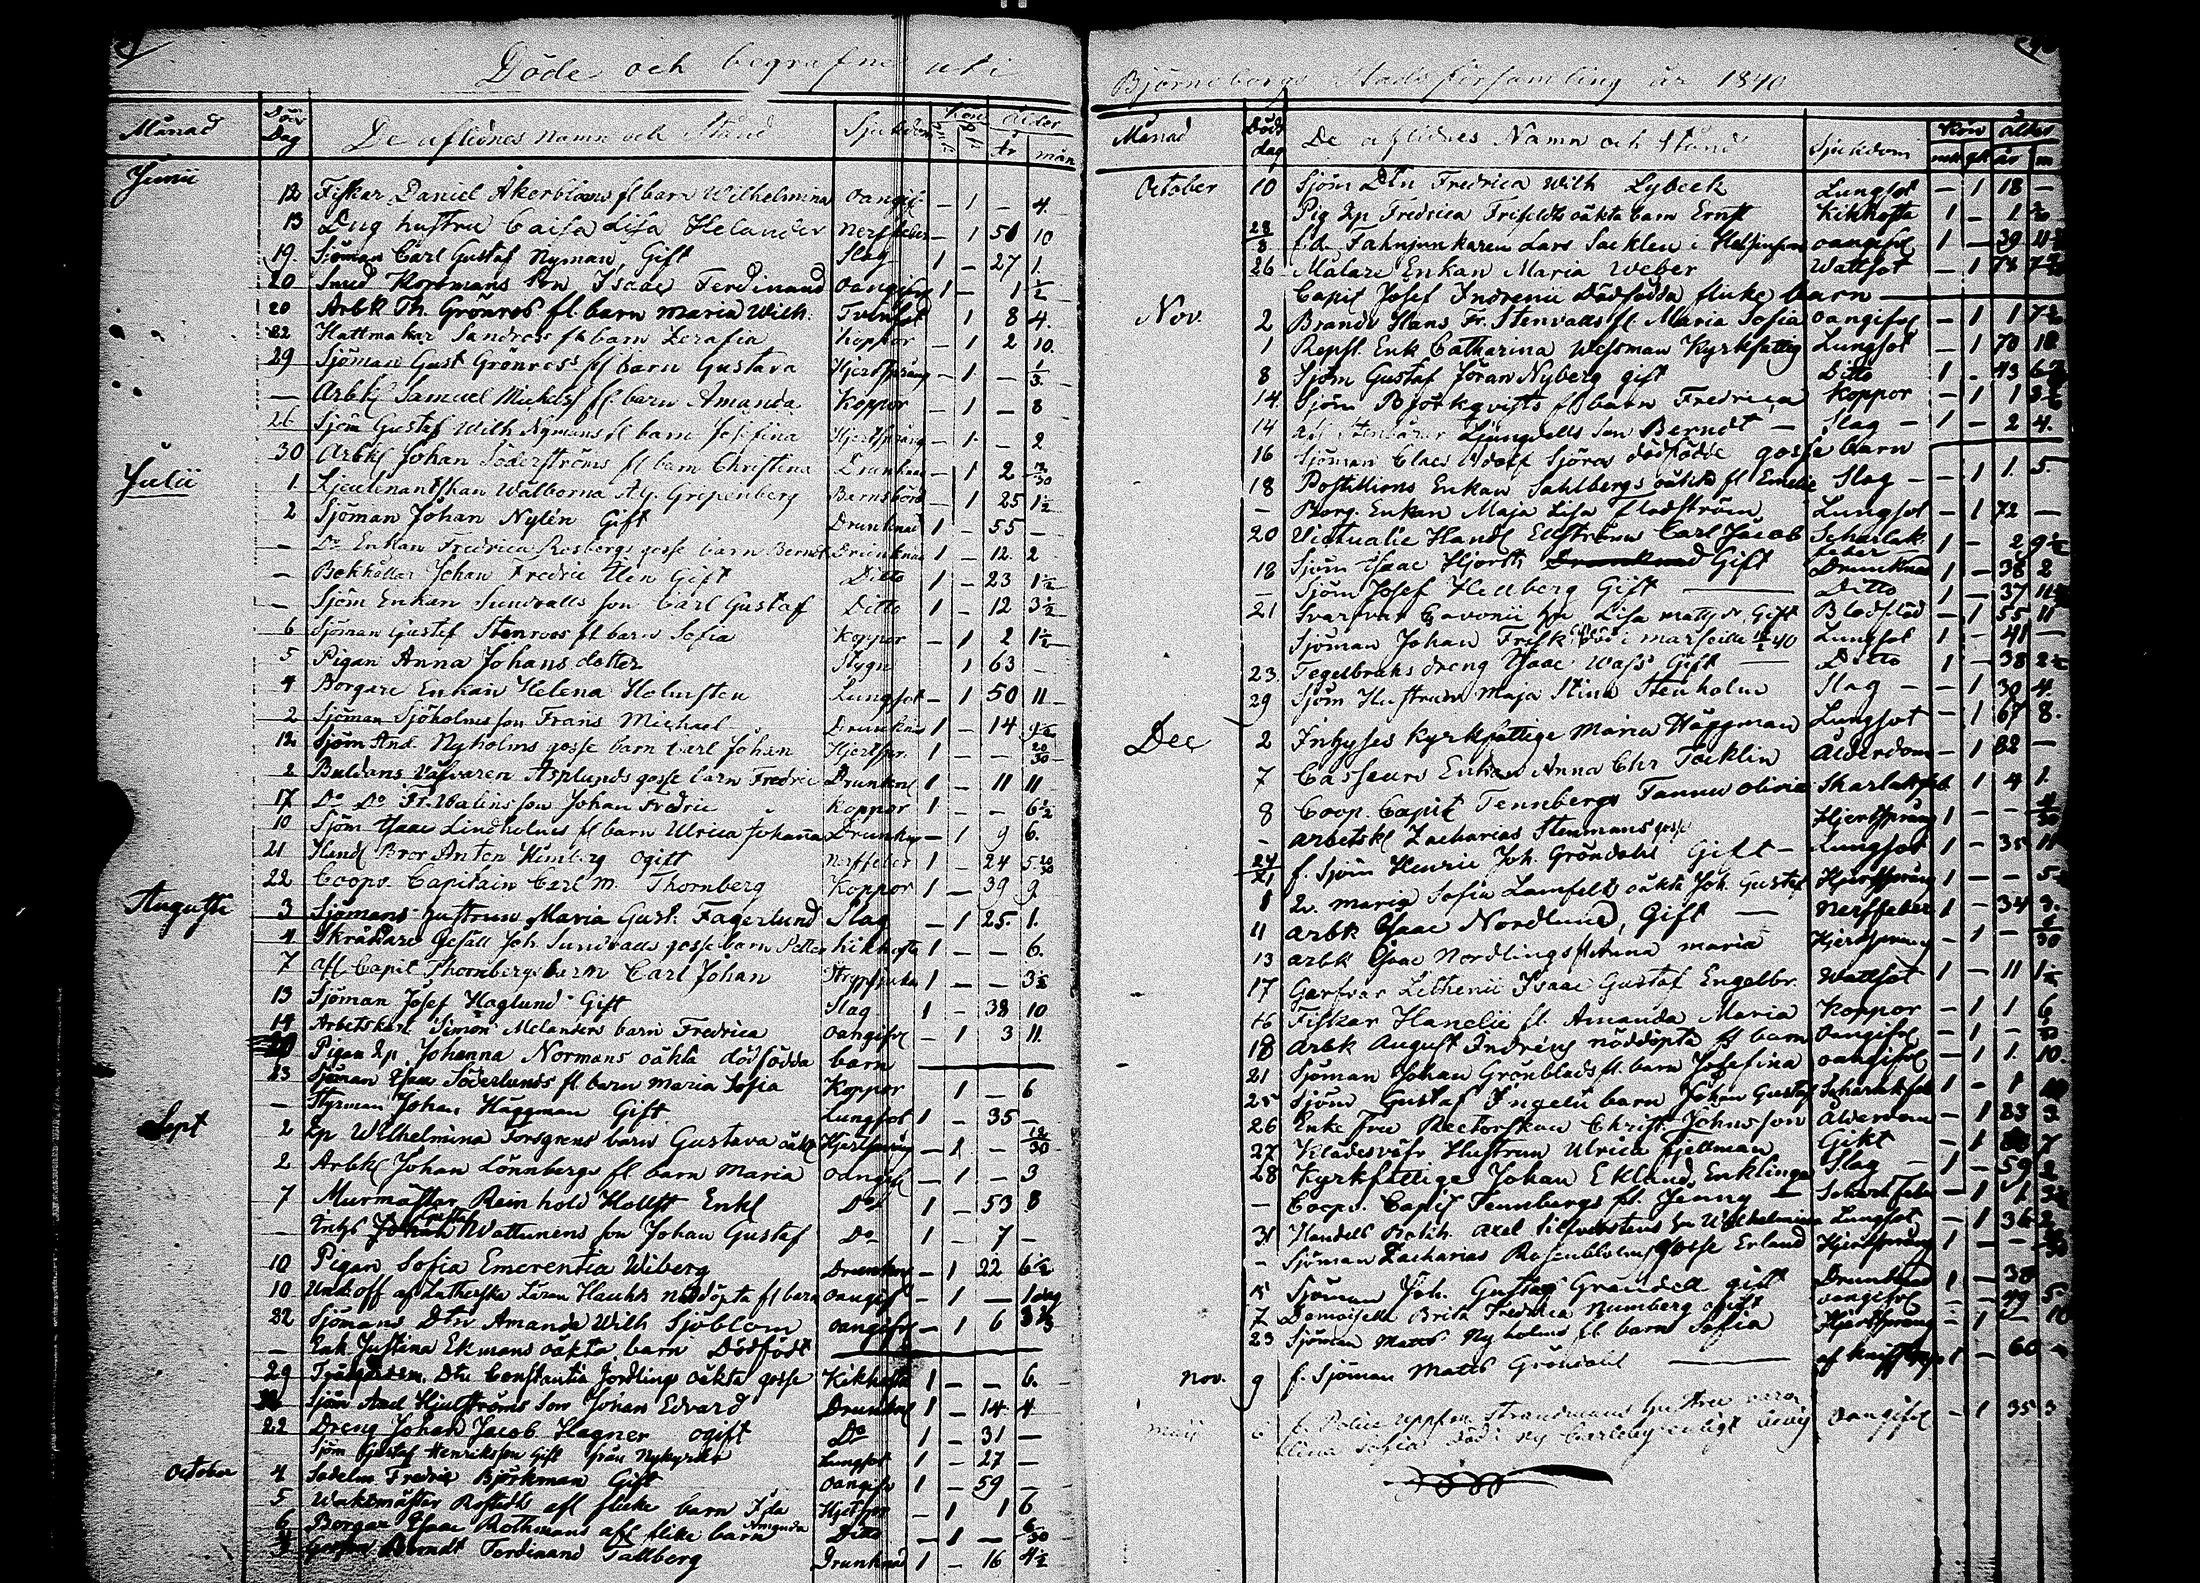 Döde och begrafne uti
Månad Död Dag De aflidnes namn och Stånd Sjukdom Kön Ålder
År mån
Junii
12 Fiskar Daniel Åkerbloms fl barn Wilhelmina oangif – 1 – 4.
13 hustru Caisa Lisa Helander Nerffeber – 1 51 10
19. Sjöman Carl Gustaf Nyman, Gift Slag 1 – 27 1.
20 Smed Korsmans Son Isaac Ferdinand oangifvet 1 – 1 ½
20 Arbk Th. Grönros fl. barn Maria Wilh. Tvinsot 1 8 4.
22 Hattmakar Sandros fl barn Serafia Koppor – 1 2 10.
29 Sjöman Gust Grönros fl barn Gustava Hjertsprång – 1 – 1/3
— Arbk Samuel Michels fl. barn Amanda Koppor – 1 – 8
26 Sjöm Gustaf Wilh Nymans fl barn Josefina Hjertsprång – 1 – 2
30 Arbk Johan Söderströms fl barn Christina Drunknad – 1 2
Julii
1. Lieutenantskan Wälborna Gripenberg Barnsbörd – 1 25 1½
2 Sjöman Johan Nylén Gift Drunknad 1 – 55 –
– Do Enkan Fredrica Rosbergs gosse barn Berndt Drunknad 1 – 12. 2
– Bokhållar Johan Fredric Gift Ditto 1 – 23 1½
– Sjöm Enkan Sundvalls son Carl Gustaf Ditto 1 – 12 3½
6 Sjöman Gustef Stenroos fl barn Sofia Koppor – 1 2 1½
5 Pigan Anna Johans dotter Stygn 1 63 –
4 Borgare Enkan Helena Holmsten Lungsot – 1 50 11
2 Sjöman Sjöholms son Frans Michael Drunknad 1 – 14 9½
12 Sjöm And. Nyholms gosse barn Carl Johan Hjertspr. 1 – – 20/30
2 Buldans Väfvaren Asplunds gosse barn Fredric Drunknd 1 – 11 11
17 Do Do Fr. Walins son Johan Fredric Koppor 1 – – 6½
10 Sjöm Isaac Lindholms fl barn Ulrica Johanna Drunkn – 1 9 6.
21 Handl Bror Anton Ogift Nerffeber 1 – 24 5
22 Coopv. Capitain Carl M. Thornberg Koppor 1 – 39 9
Augusti
3 Sjömans hustrun Maria Gust. Fagerlund Slag – 1 25. 1.
4 Skräddare Gesäll Joh. Sundvalls gosse barn Petter Kikhosta 1 – – 6.
7 afl. Capit Thornbergs barn Carl Johan 1 – – 3½
13 Sjöman Josef Haglund Gift Slag 1 – 38 10
14 Arbetskarl Simon Melanders barn Fredrica oangifvet – 1 3 11.
Pigan Johanna Normans oäkta dödfödda barn
23 Sjöman Isaac Söderlunds fl. barn Maria Sofia Koppor 1 – 6
– Styrman Johan Häggman Gift Lungsot 1 – 35 –
Sept
2 Wilhelmina Forsgrens barn Gustava oäkta Hjertsprång – 1 – 12/30
2 Arbk Johan Lönnbergs fl. barn Maria oangif – 1 – 3
7 Murmäster Reinhold Hollst Enkl Do 1 – 53 8
– Inhys Gustaf Wattunens son Johan Gustaf Do 1 – 7 –
10 Pigan Sofia Emerentia Wiberg Drunknd – 1 22 6½
10 Und.off nöddöpta fl barn oangif – 1 – 1 dag
22 Sjömans Dtn Amanda Wilh Sjöblom oangifvet – 1 6
– Enk Justina Ekmans oäkta barn Dödfödt
29 Dtn Constantia Jordlings oäkta gosse Kikhosta 1 – – 6.
Sjöm Axel Hjulströms Son Johan Edvard Drunknd 1 – 14 4
22 Dreng Johan Jacob Hagner ogift Do 1 – 31 –
Sjöm Gustaf Henriksson Gift från Nykyrko Lungsot 1 – 27 –
October
4 Sadelm Fredric Björkman Gift oangifv 1 – 59 –
5 Waktmäster Rosteds afl flicke barn Ida Hjertspr – 1 1 6
6 Borgar Isaac Rothmans afl flike barn Amanda Ditto – 1 – 6/30
3 Berndt Ferdinand Tallberg Drunknad 1 – 16 4½
Björneborgs Stads församling år 1840
Månad Död dag De aflidnes Namn och Stånd Sjukdom Kön ålder
mk qk år m
October 10 Sjöm Dtn Fredrica Wilh Lybeck Lungsot – 1 18 –
Pig Fredrica Frifeldts oäkta barn Ernst Kikhosta 1 – 1
28/3 f.d. Fahnjunkaren Lars Sacklen i Helsingfors oangifvet 1 – 39 11
26 Målare Enkan Maria Weber Wattsot – 1 74 7
Capit Josef Indrenii Dödfödda flicke barn
Nov. 2 Brandv Hans Fr. Stenvalls fl Maria Sofia oangifvet – 1 1 7½
1 Repsl. Enk Catharina Wessman Kyrkfattig Lungsot – 1 70 10
8 Sjöm Gustaf Jöran Nyberg gift Ditto 1 – 43 6
14. Sjöm Björkqvists fl barn Fredrica Koppor – 1 1 3
14 Ljungdells son Berndt – Slag – 1 – 2 4.
16 Sjöman Claes Adolf Sjöros dödfödde gosse barn
18 Postillions Enkan Sahlbergs oäkta fl Emelie Slag – – 1 1. 5.
– Borg. Enkan Maja Lisa Flodström Lungsot – 1 72 –
20 Victualie Handl Ellströms Carl Jacob Scharlak feber 1 – 2 9½
18 Sjöm Isaac Hjorth Gift Drunknad 1 – 38 2
– Sjöm Josef Hellberg Gift Ditto 1 – 37 11
21 Svarfvar Gavonii Lisa Gift Blodstöd – 1 55 11
Sjöman Johan Frisk död i Marseille 40 Lungsot 1 – 41 –
23. Tegelbruks dreng Isaac Wass Gift Ditto 1 – 38 2½
29 Sjöm Hustrun Maja Stina Stenholm Slag – – 1 30 4.
Dec 2 Inhyses kyrkfattige Maria Häggman Lungsot – 1 67 8.
7 Casseurs Enkan Anna Chr Täcklin Ålderdom – 1 82 –
8 Coop. Capit Tennbergs Fanny Olivia Sharlaksfeb 1 4 1.
– arbetsk Zacharias Stenmans gosse Hjertsprång 1 – –
f. Sjöm Henric Joh. Gröndahl Gift – Lungsot 1 – 35 11
1 Maria Sofia Lamfelts oäkta Joh. Gustaf Hjertsprång 1 – – 5
11 arbk Isaac Nordlund, Gift Nerffeber 1 – 34 3.
13 arbk Isaac Nordlings fl Anna Maria Hjertsprång – 1 – 6/30
17 Garfvar Lithenii Isaac Gustaf Engelbr. Wattsot 1 11 1½
16 Fiskar Hanelii fl. Amanda Maria Koppor – 1 1 6
18 Arbk August Indrens nöddöpta fl barn oangifvet – 1 –
21 Sjöman Johan Grönblads fl. barn Josefina oangifvet – 1 1. 10.
25 Sjöm Gustaf Ingelii barn Johan Gustaf Scharlaksfeb 1 – 1
26 Enke Fru Rectorskan Christ. Johnsson Ålderdom – 1 83 3
27 Klädesväfv Hustrun Ulrica Fjellman Gikt – 1 7
28 Kyrkfattige Johan Eklund, Enklinge Slag 1 – 59 2
– Coopv. Capit Tennbergs fl. Jenny – Scharl feber – 1 1
31 Handels Axel Wilhelmina Lungsot – 1 36 2
– Sjöman Zacharias Rosenbloms gosse Erland Hjertsprång 1 – –
15 Sjöman Joh. Gustaf Grandell gift Drunknad 1 – 38
7 Demoiselle Brita Fredrica Numberg ogift oangifvet – 49 5
23 Sjöman Matts Nyholms fl barn Sofia Hjertsprång – 1 – 10
Nov. 9 f. Sjöman Matts Gröndahl 1 – 60
Maij 6 f. Police uppsm Strandmans hustru
Sofia död i Ny Carleby enligt bevis oangifvet – 1 35 3